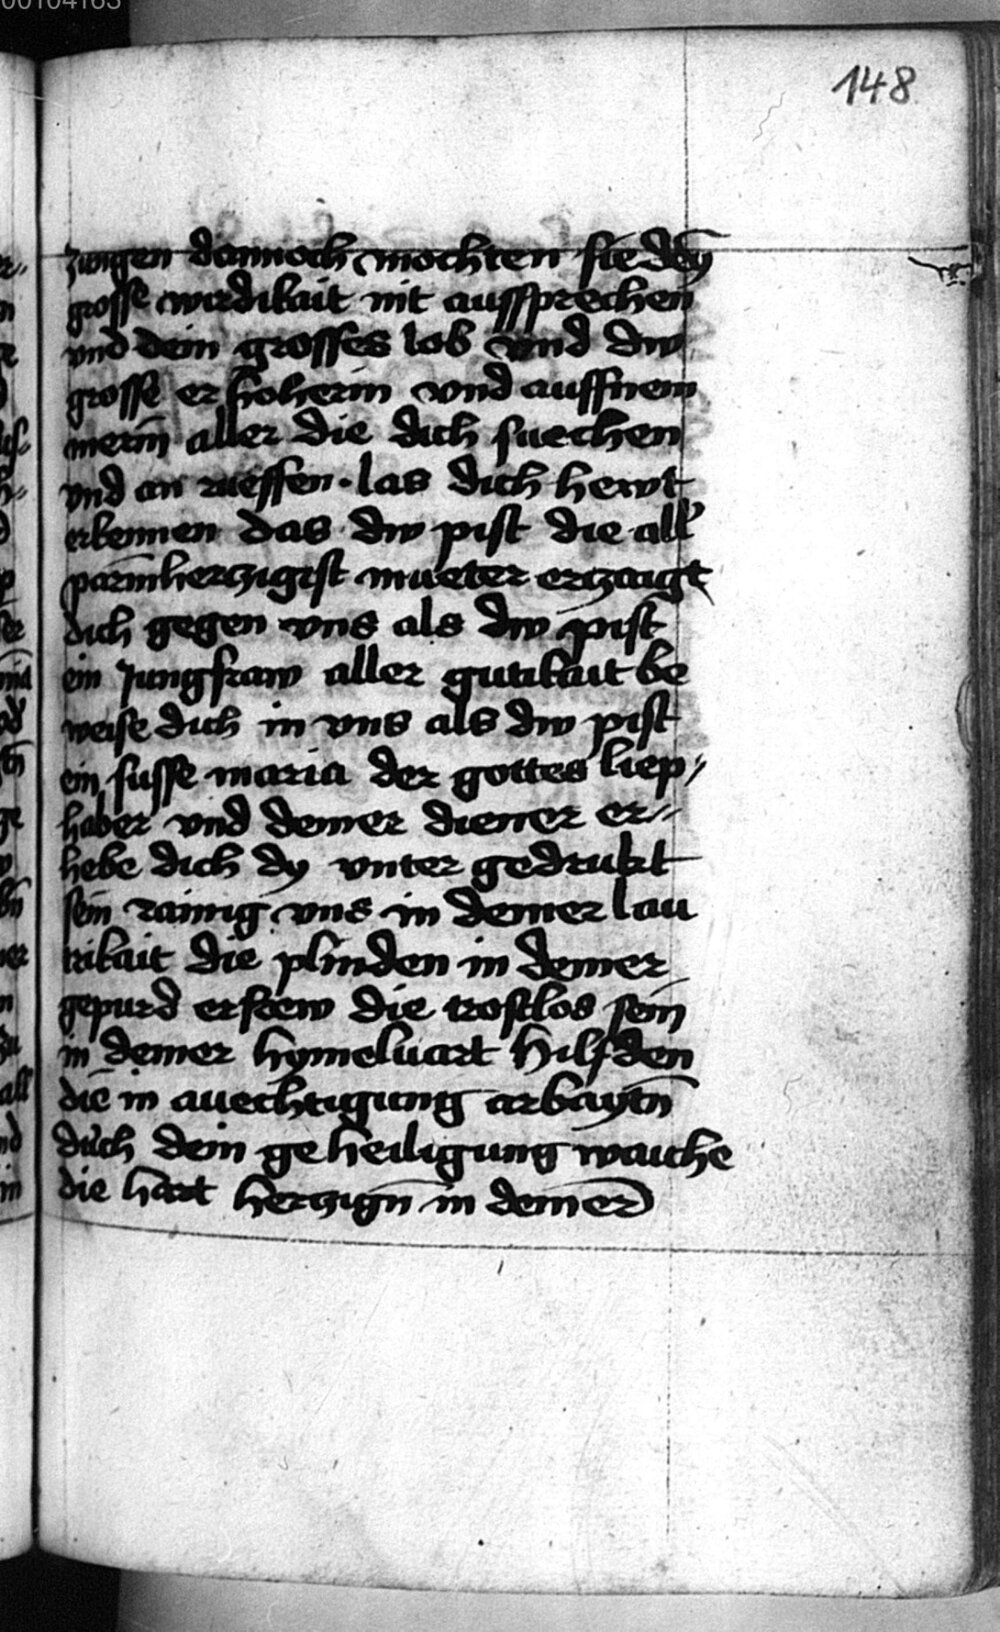 148
zungen dannoch mochten sie dey̅
grosse wirdikait nit aussprechen
vnd dein grosses lob vnd dw
grosse er hoherin vnd auffnem
merin aller die dich suechen
vnd an rueffen · las dich hewt
erkennen das dw pist die all
parmherczigist mueter erczaigt
dich gegen vns als dw pist
ein Jungfraw aller gutikait be
weise dich in vns als dw pist
ein susse maria der gottes liep⸗
haber vnd deiner diener er⸗
hebe dich dy vnter gedrukt
sein rainig vns in deiner lau
trikait die plinden in deiner
gepurd erfrew die trostlos sein
in deiner hymeluart hilf den
die in auechtigung arbaytn̅
durch dein geheiligung waiche
die hart herczign̅ in deiner